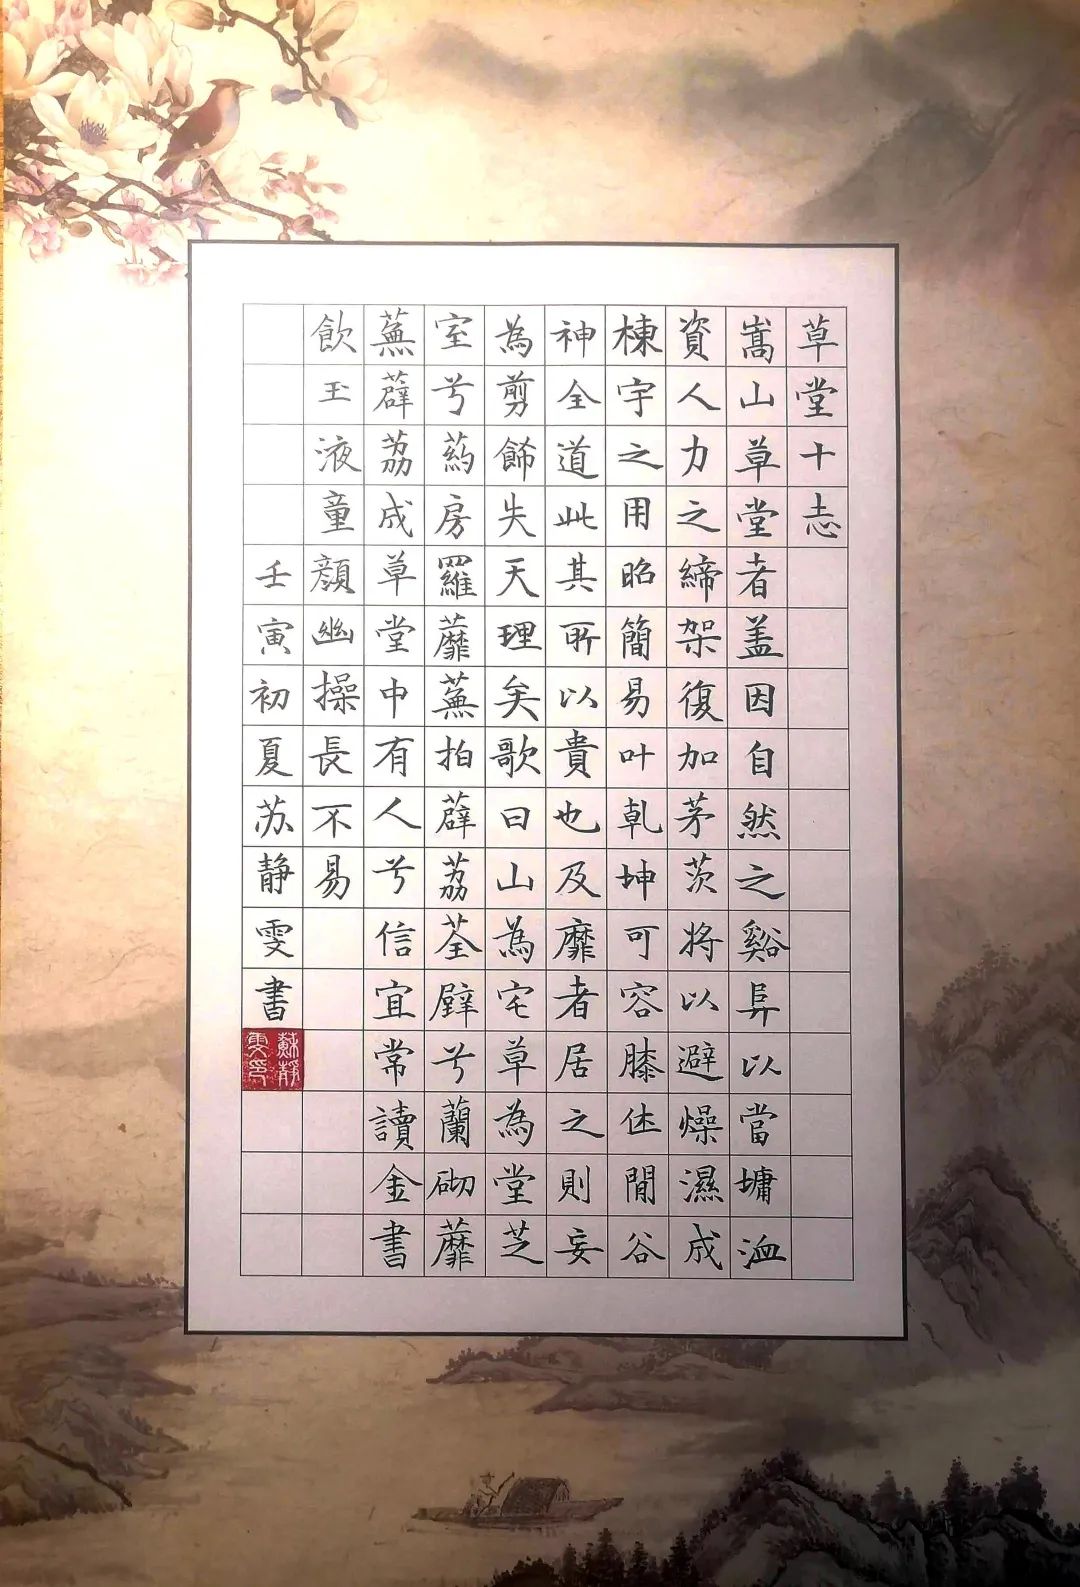 草堂十志
嵩山草堂者盖因自然之谿阜以當墉洫
資人力之締架復加茅茨將以避燥濕成
棟宇之用昭簡易叶乹坤可容膝休閒谷
神全道此其所以貴也及靡者居之則妄
為剪飾失天理矣歌曰山為宅草為堂芝
室兮葯房羅蘼蕪拍薜荔荃壁兮蘭砌蘼
蕪薜荔成草堂中有人兮信宜常讀金書
飲玉液童顏幽操長不易
壬寅初夏苏静雯書
蘇靜雯印